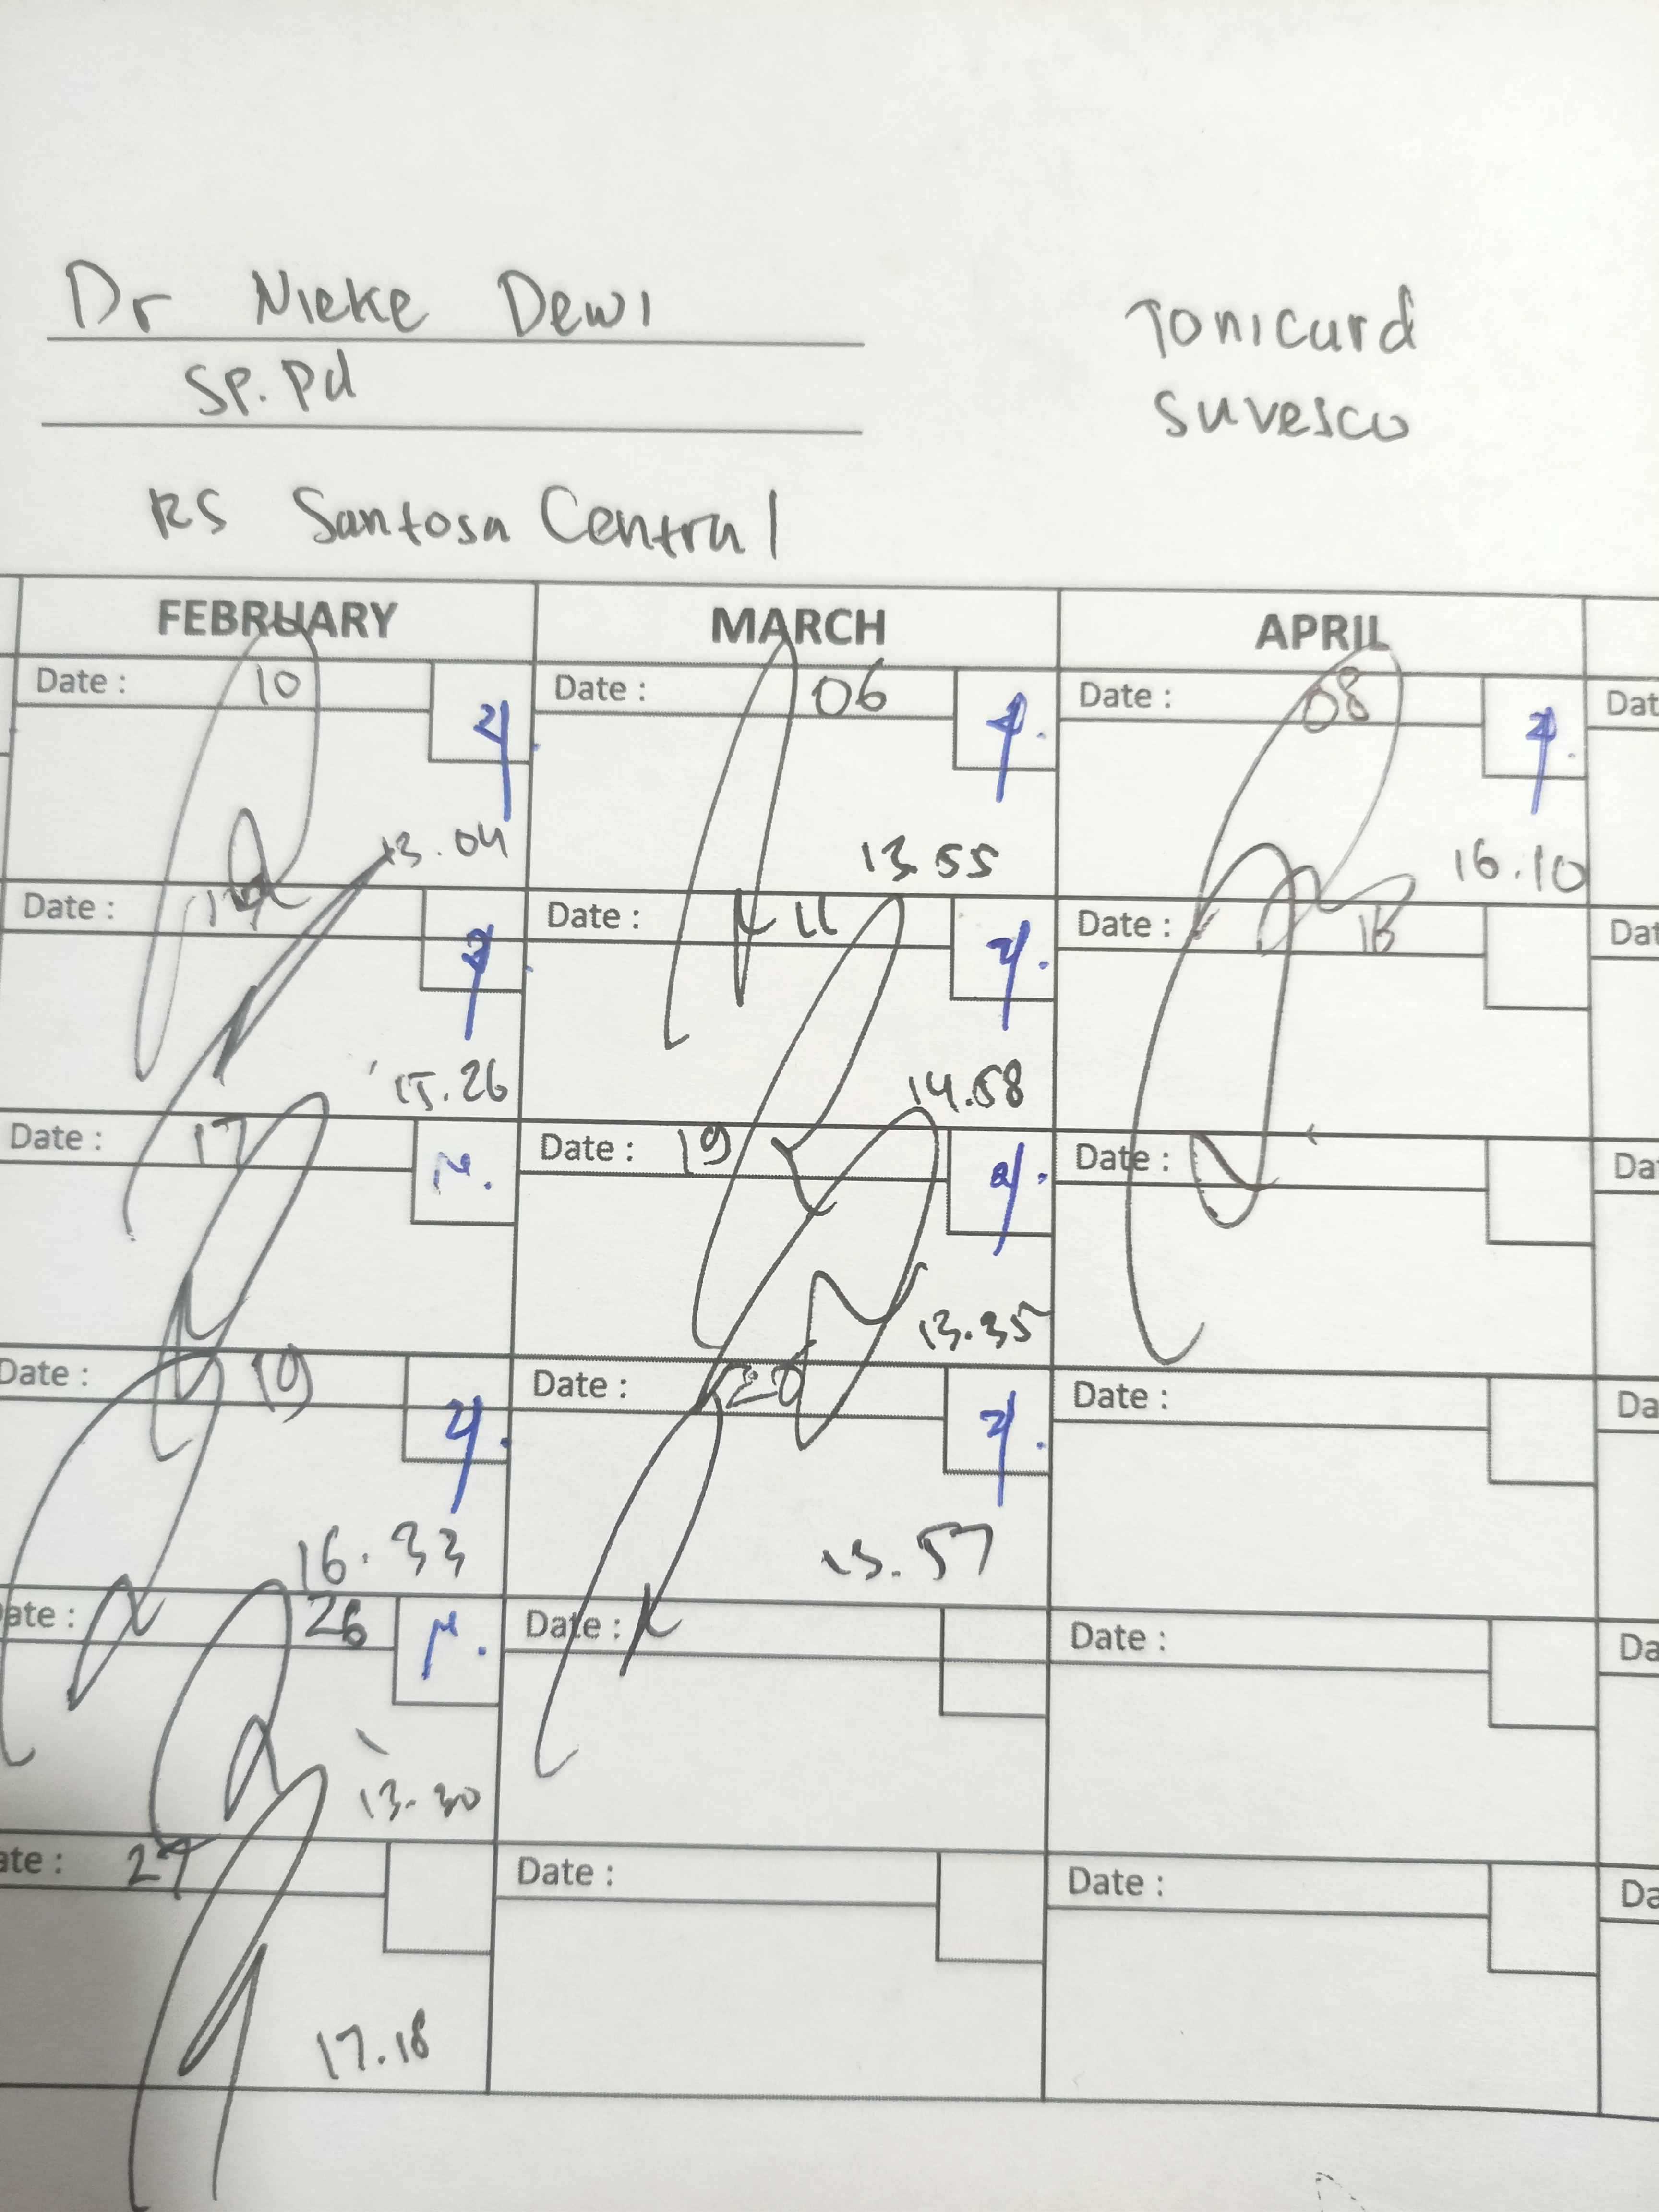 Dr Nieke Dewi
Sp. Pd
Tonicard
Suvesco
RS Santosa Central
FEBRUARY MARCH APRIL
Date : 10 Date : 06 Date : 08 Dat
13.04 13.55 16.10
Date : Date : 11 Date : Dat
15.26 14.58
Date : 17 Date : 19 Date : Dat
13.35
Date : 19 Date : 20 Date : Da
16.33 13.57
ate : 26 Date : Date : Da
13.30
ate : 27 Date : Date : Da
17.18